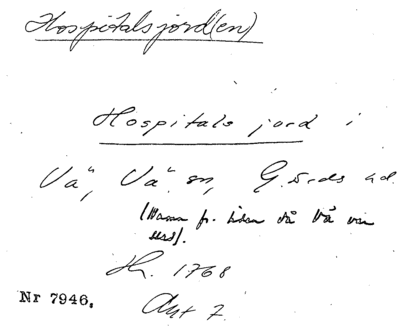 Hospitalsjord(en)
Hospitals jord i
Vä", Vä sn, G.ärds hd.
(Namn fr. tiden då Vä var
stad).
Hh. 1768
Akt 7.
Nr 7946.